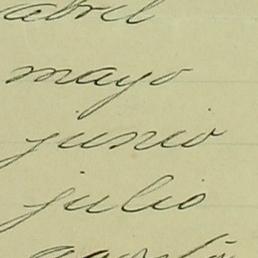 abril
mayo
junio
julio
agosto